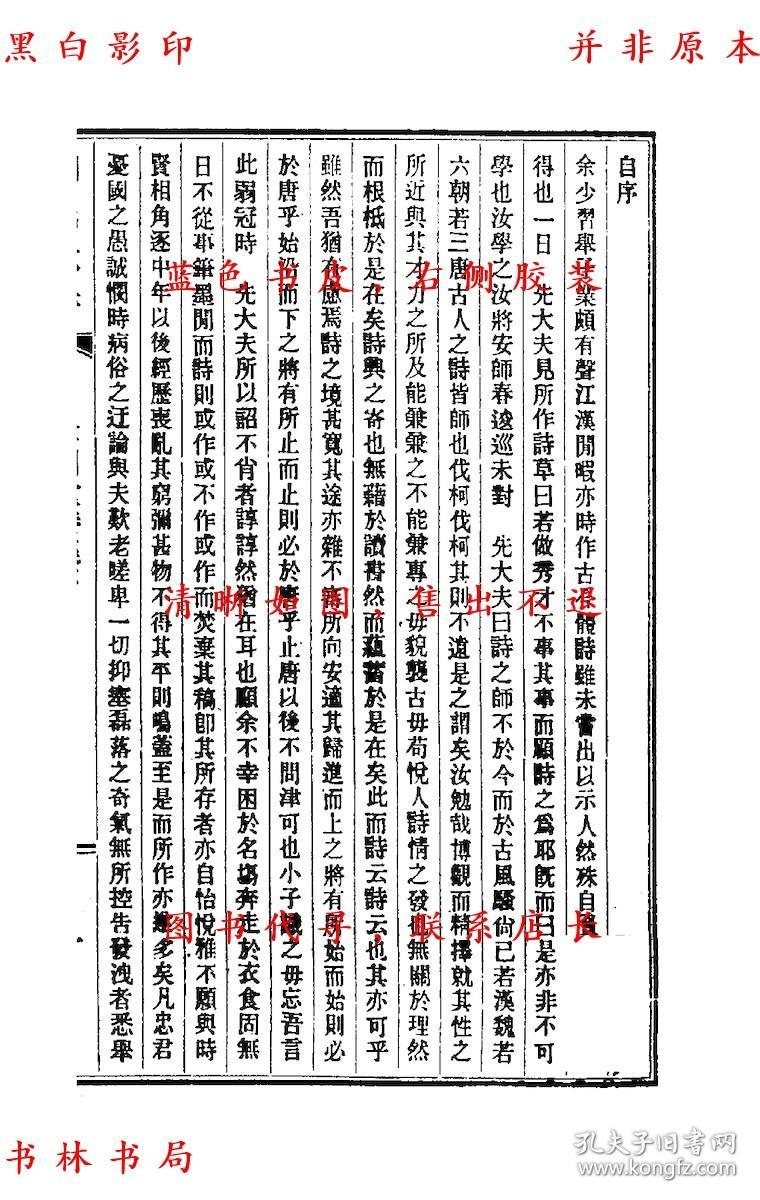 黑白影印
并非原本
自序
余少習舉業頗有聲江漢閒暇亦時作古今體詩雖未嘗出以示人然殊自喜
得也一日　先大夫見所作詩草曰若做秀才不事其事而顧詩之爲耶旣而曰是亦非不可
學也汝學之汝將安師春逡巡未對　先大夫曰詩之師不於今而於古風騷尙已若漢魏若
六朝若三唐古人之詩皆師也伐柯伐柯其則不遠是之謂矣汝勉哉博觀而精擇就其性之
所近與其才力之所及能兼兼之不能兼專之毋貌襲古毋苟悅人詩情之發也無關於理然
而根柢於是在矣詩興之寄也無藉於讀書然而蘊蓄於是在矣此而詩云詩云也其亦可乎
雖然吾猶有慮焉詩之境甚寬其途亦雜不審所向安適其歸進而上之將有所始而始則必
於唐乎始沿而下之將有所止而止則必於唐乎止唐以後不問津可也小子識之毋忘吾言
此弱冠時　先大夫所以詔不肖者諄諄然猶在耳也顧余不幸困於名場奔走於衣食固無
日不從事筆墨閒而詩則或作或不作或作而焚棄其稿卽其所存者亦自怡悅雅不願與時
賢相角逐中年以後經歷喪亂其窮彌甚物不得其平則鳴蓋至是而所作亦遂多矣凡忠君
憂國之愚誠憫時病俗之迂論與夫歎老嗟卑一切抑塞磊落之奇氣無所控告發洩者悉舉
蓝色书皮，右侧胶装
清晰如图，售出不退
图书代寻，联系店长
书林书局
孔夫子旧书网
www.kongfz.com